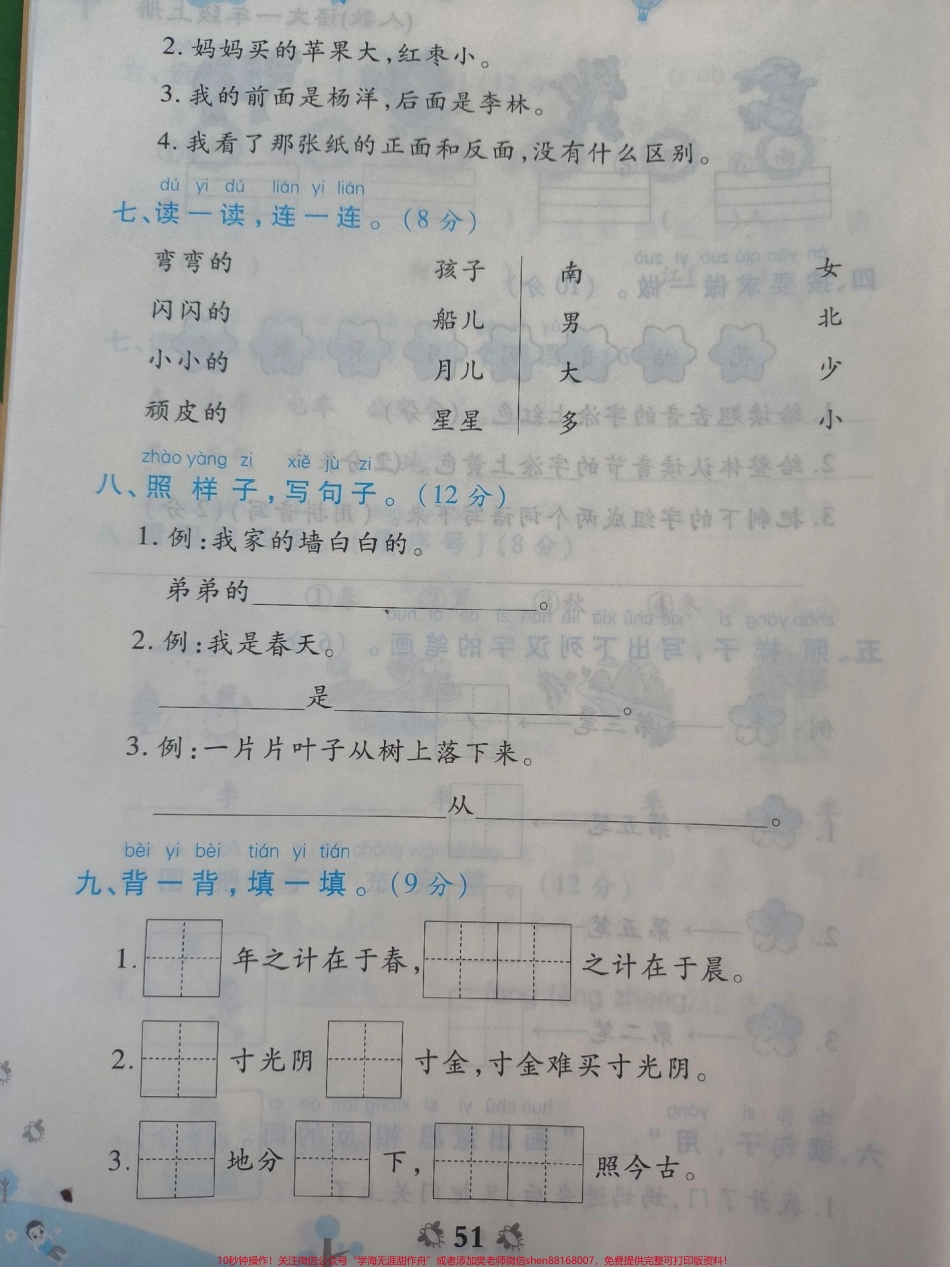 2. 妈妈买的苹果大,红枣小。
3. 我的前面是杨洋,后面是李林。
4. 我看了那张纸的正面和反面,没有什么区别。
dú yi dú lián yi lián
七、读一读,连一连。(8分)
弯弯的 孩子 南 女
闪闪的 船儿 男 北
小小的 月儿 大 少
顽皮的 星星 多 小
zhào yàng zi xiě jù zi
八、照样子,写句子。(12分)
1. 例:我家的墙白白的。
弟弟的____________。
2. 例:我是春天。
______是____________。
3. 例:一片片叶子从树上落下来。
____________从____________。
bèi yi bèi tián yi tián
九、背一背,填一填。(9分)
1. 年之计在于春, 之计在于晨。
2. 寸光阴 寸金,寸金难买寸光阴。
3. 地分 下, 照今古。
51
10秒钟操作!关注微信公众号“学海无涯甜作舟”或者添加樊老师微信shen88168007,免费提供完整可打印版资料!